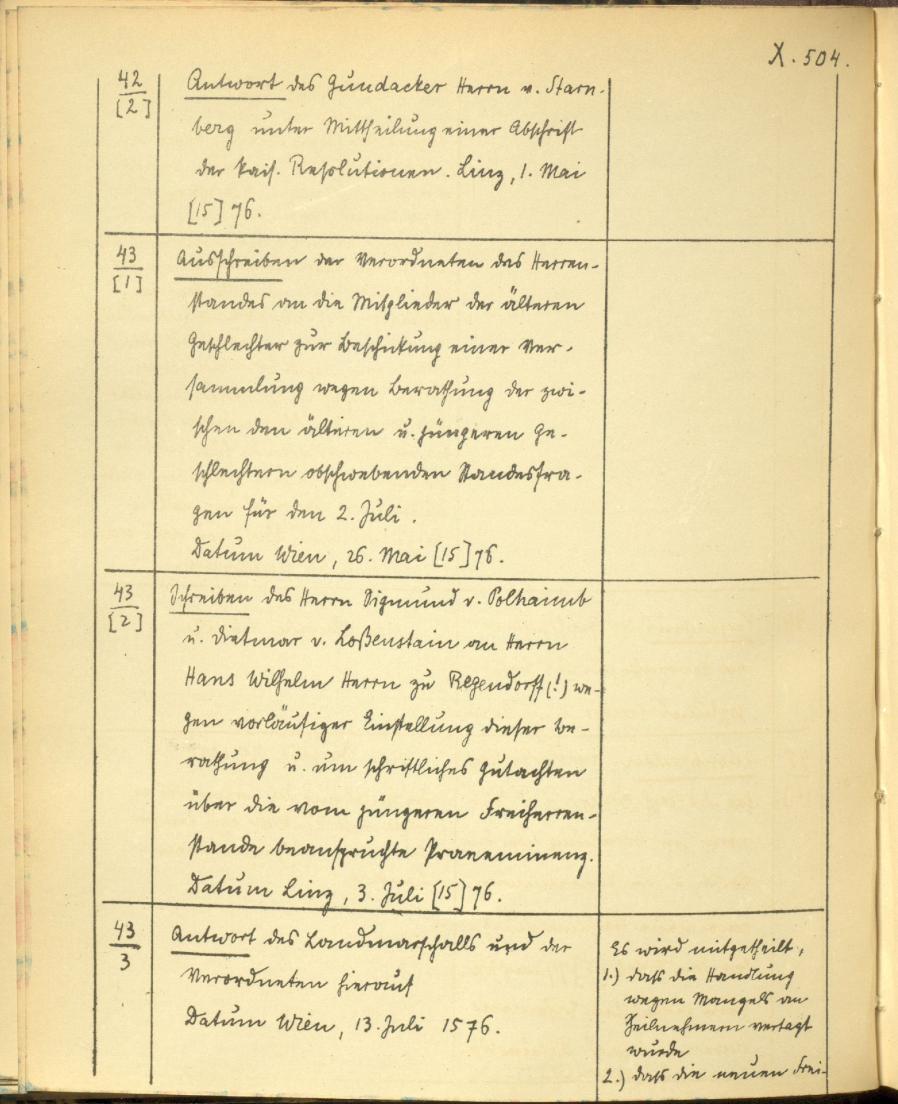 X. 504.
42
[2]
Antwort des Gundacker Herrn v. Starn-
berg unter Mittheilung einer Abschrift
der kais. Resolutionen. Linz, 1. Mai
[15]76.
43
[1]
Ausschreiben der Verordneten des Herren-
standes an die Mitglieder der älteren
Geschlechter zur Beschickung einer Ver-
sammlung wegen Berathung der zwi-
schen den älteren u. jüngeren Ge-
schlechtern obschwebenden Standesfra-
gen für den 2. Juli.
Datum Wien, 26. Mai [15]76.
43
[2]
Schreiben des Herrn Sigmund v. Polhaimb
u. Dietmar v. Loßenstain an Herrn
Hans Wilhelm Herrn zu Regendorff (!) we-
gen vorläufiger Einstellung dieser Be-
rathung u. um schriftliches Gutachten
über die vom jüngeren Freiherren-
stande beanspruchte Praeeminenz.
Datum Linz, 3. Juli [15]76.
43
3
Antwort des Landmarschalls und der
Verordneten hierauf
Datum Wien, 13. Juli 1576.
Es wird mitgetheilt,
1.) daß die Handlung
wegen Mangels an
Theilnehmern vertagt
wurde
2.) daß die neuen Frei-